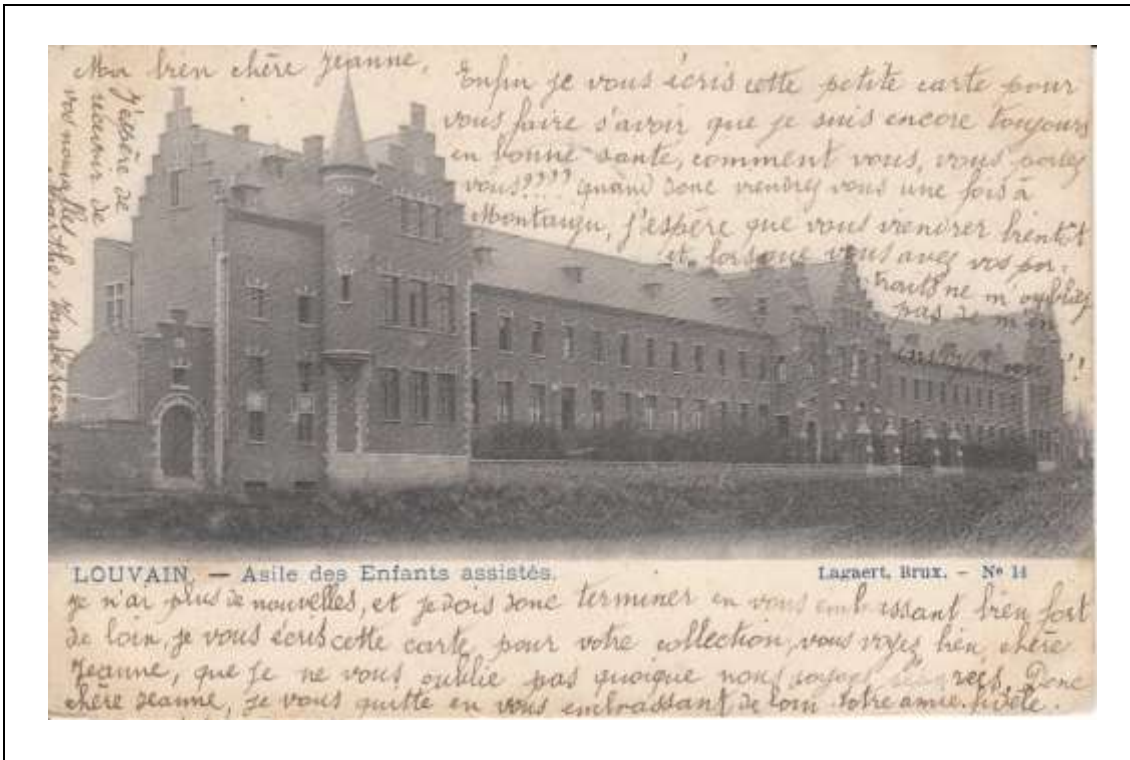 Ma bien chère Jeanne,
Enfin je vous écris cette petite carte pour
vous faire s'avoir que je suis encore toujours
en bonne sante, comment vous, vous portez
vous???? quand donc viendrez vous une fois à
Montaigu, j'espère que vous viendrez bientôt
et, lorsque vous avez vos por-
traits ne m'oubliez
pas de m'en
LOUVAIN. — Asile des Enfants assistés.
Lagaert, Brux. - No 14
je n'ai plus de nouvelles, et je dois donc terminer en vous embrassant bien fort
de loin, je vous écris cette carte pour votre collection, vous voyez bien chère
Jeanne, que je ne vous oublie pas quoique nous soyons Donc
chère Jeanne, je vous quitte en vous embrassant de loin Votre amie
J'espère de
recevoir de
vos nouvelles
Marthe